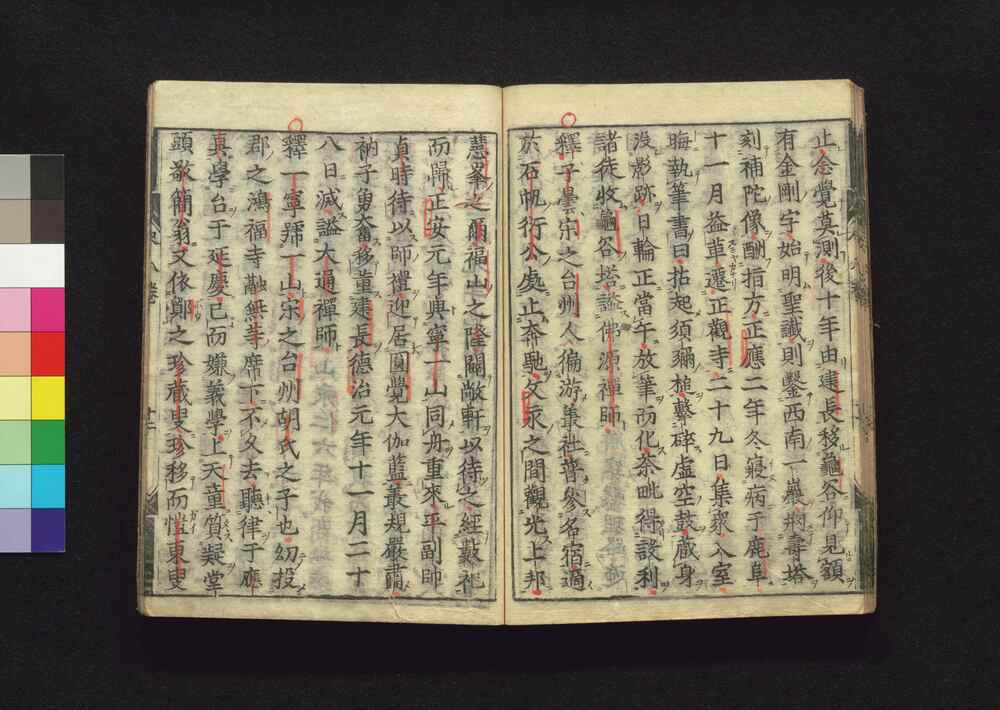 止念覺莫測後十年由建長移龜谷仰見額
有金剛字始明聖讖則鑿西南一巖剏壽塔
刻補陀像酬指方正應二年冬寢病于鹿阜
十一月益革遷正觀寺二十九日集衆入室
晦執筆書曰拈起須彌槌擊碎虛空鼓藏身
沒影跡日輪正當午放筆而化茶毗得設利
諸徒收龜谷塔謚佛源禪師
釋子曇宋之台州人徧游叢社普參名宿適
於石帆衍公處止奔馳文永之間觀光上邦
慧峯之爾福山之隆闢敞軒以待之經數祀
而歸正安元年與寧一山同舟重來平副師
貞時待以師禮迎居圓覺大伽藍叢規嚴肅
衲子奧奮移董建長德治元年十一月二十
八日滅謚大通禪師
釋一寧號一山宋之台州胡氏之子也幼投
郡之鴻福寺融無等席下不久去聽律于應
真學台于延慶已而嫌義學上天童質礙堂
頭敬簡翁又依鄮之珍藏叟珍移而愷東叟